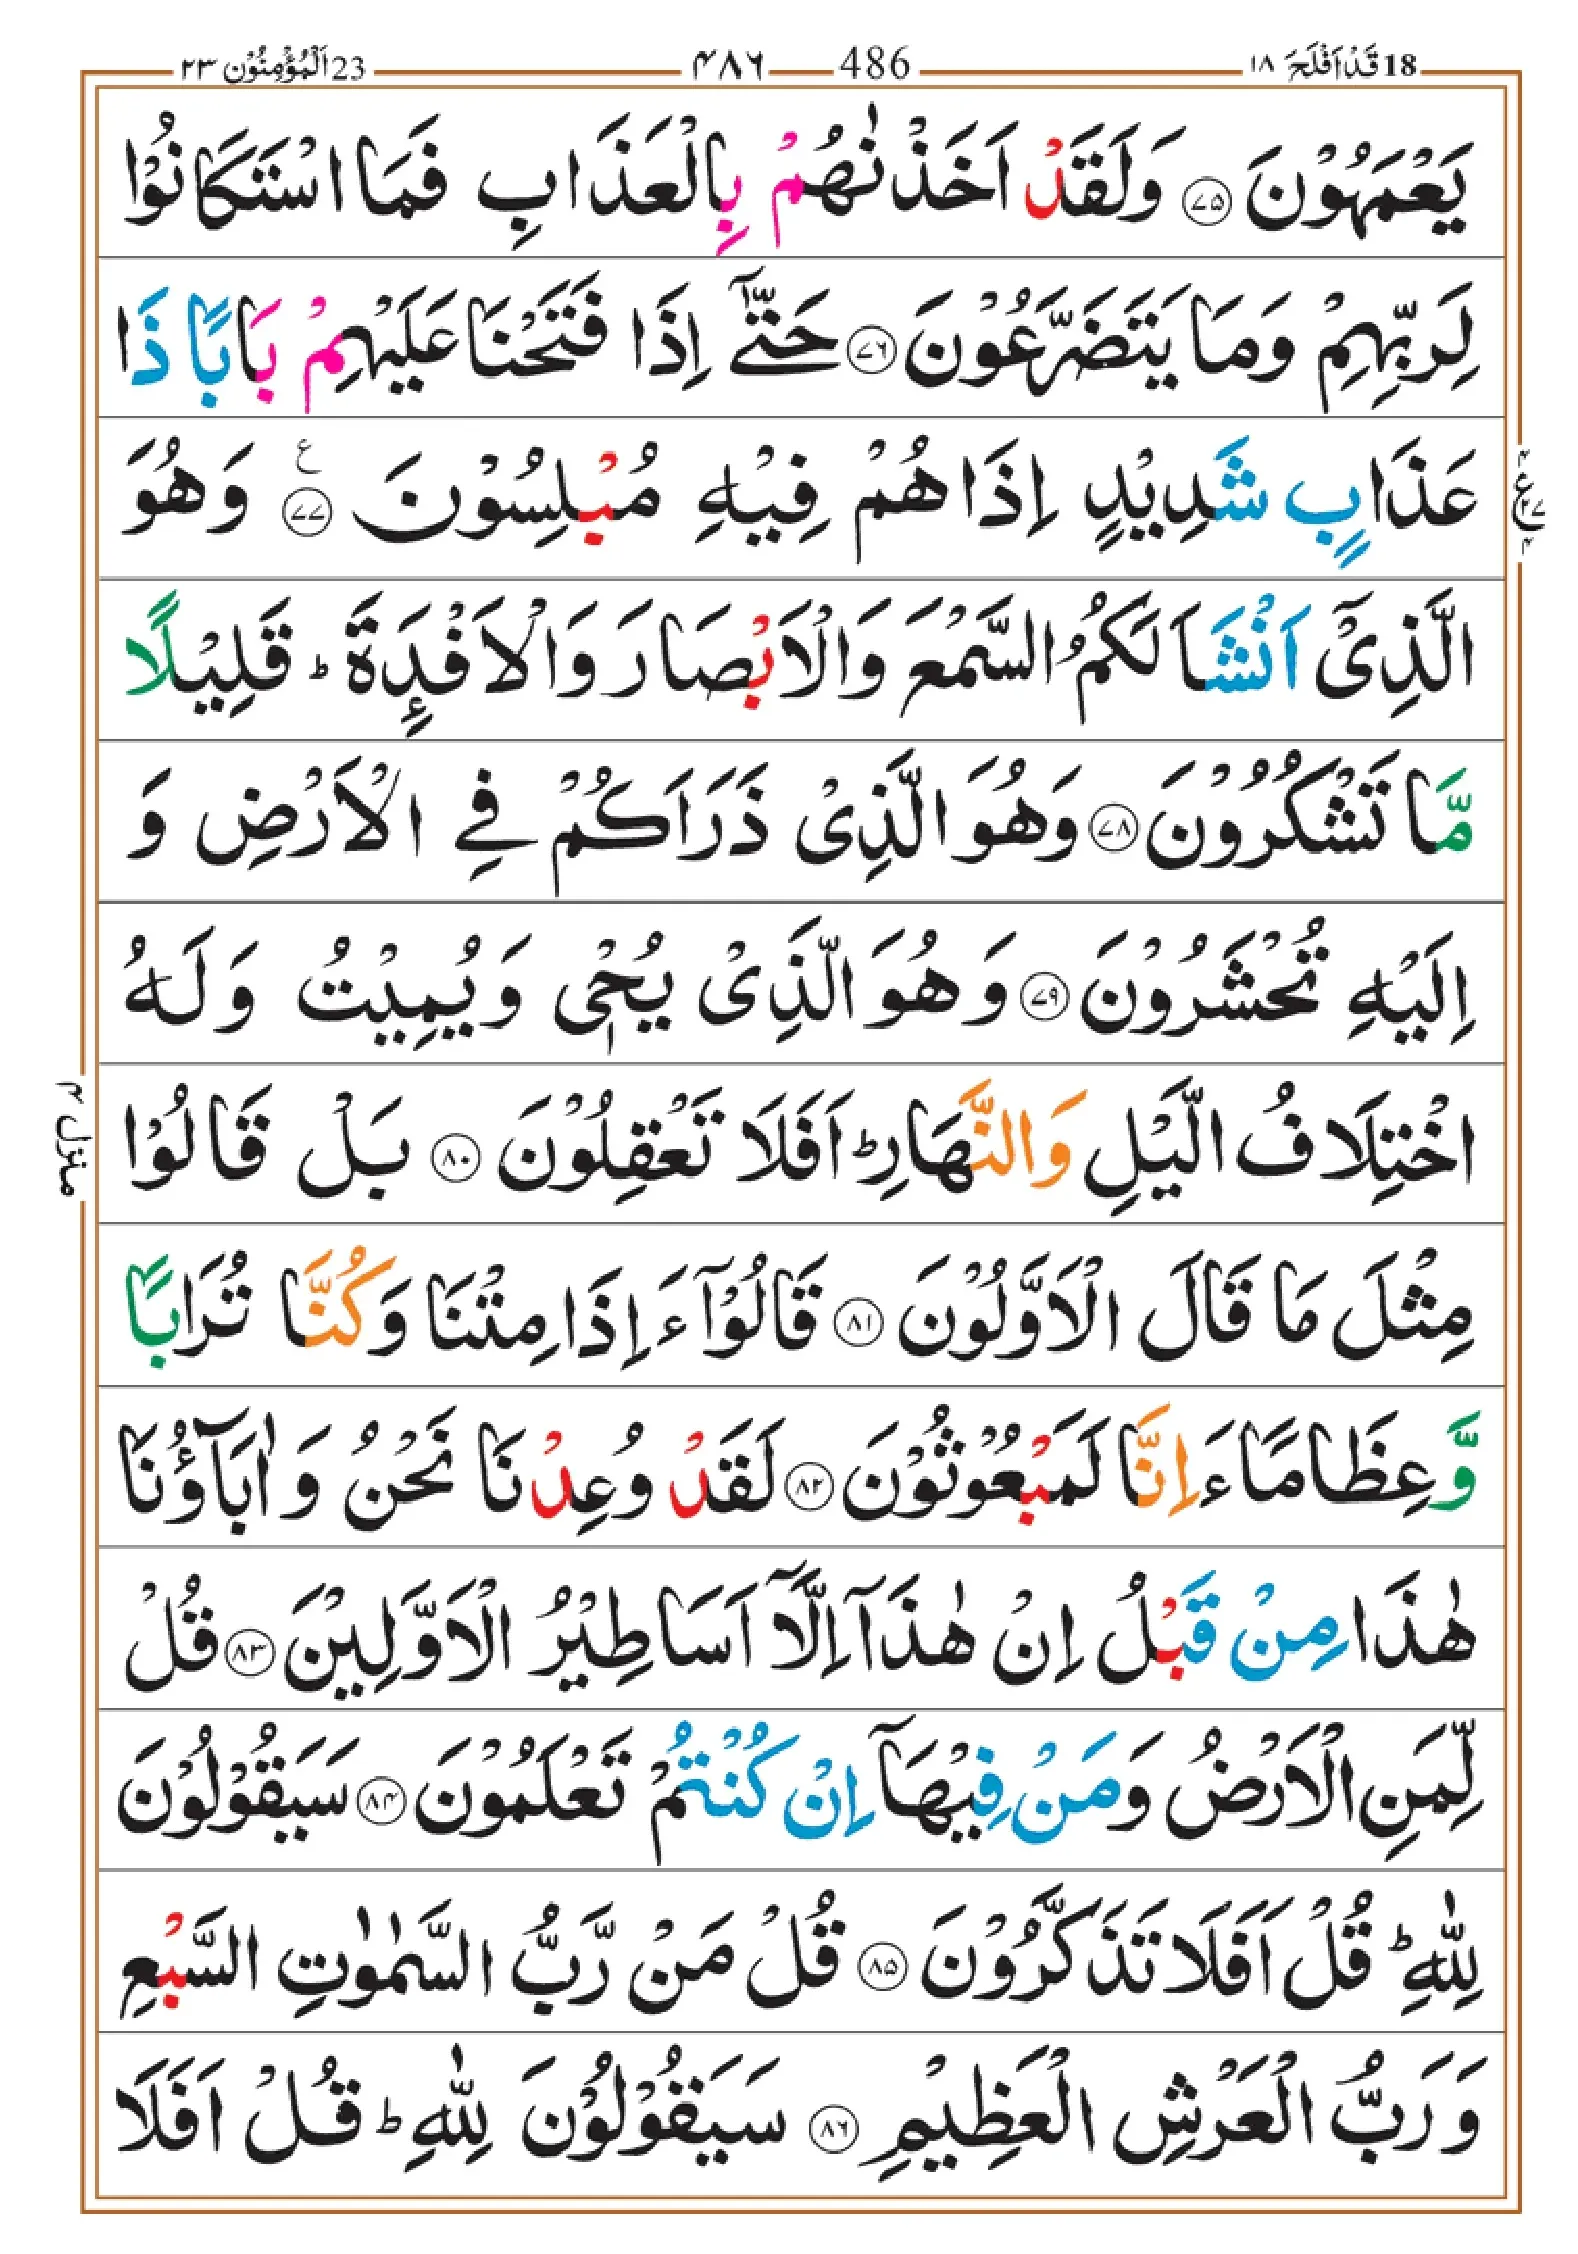 18 قَدْ اَفْلَحَ ١٨
486 ۴۸۶
23 اَلْمُؤْمِنُوْن ٢٣
يَعْمَهُوْنَ ﴿۷۵﴾ وَلَقَدْ اَخَذْنٰهُمْ بِالْعَذَابِ فَمَا اسْتَكَانُوْا
لِرَبِّهِمْ وَمَا يَتَضَرَّعُوْنَ ﴿۷۶﴾ حَتّٰٓى اِذَا فَتَحْنَا عَلَيْهِمْ بَابًا ذَا
عَذَابٍ شَدِيْدٍ اِذَا هُمْ فِيْهِ مُبْلِسُوْنَ ﴿۷۷﴾ ع وَهُوَ
الَّذِيْٓ اَنْشَاَ لَكُمُ السَّمْعَ وَالْاَبْصَارَ وَالْاَفْـِٕدَةَ ؕ قَلِيْلًا
مَّا تَشْكُرُوْنَ ﴿۷۸﴾ وَهُوَ الَّذِيْ ذَرَاَكُمْ فِي الْاَرْضِ وَ
اِلَيْهِ تُحْشَرُوْنَ ﴿۷۹﴾ وَهُوَ الَّذِيْ يُحْيٖ وَيُمِيْتُ وَلَهُ
اخْتِلَافُ الَّيْلِ وَالنَّهَارِ ؕ اَفَلَا تَعْقِلُوْنَ ﴿۸۰﴾ بَلْ قَالُوْا
مِثْلَ مَا قَالَ الْاَوَّلُوْنَ ﴿۸۱﴾ قَالُوْٓا ءَاِذَا مِتْنَا وَكُنَّا تُرَابًا
وَّعِظَامًا ءَاِنَّا لَمَبْعُوْثُوْنَ ﴿۸۲﴾ لَقَدْ وُعِدْنَا نَحْنُ وَاٰبَآؤُنَا
هٰذَا مِنْ قَبْلُ اِنْ هٰذَآ اِلَّآ اَسَاطِيْرُ الْاَوَّلِيْنَ ﴿۸۳﴾ قُلْ
لِّمَنِ الْاَرْضُ وَمَنْ فِيْهَآ اِنْ كُنْتُمْ تَعْلَمُوْنَ ﴿۸۴﴾ سَيَقُوْلُوْنَ
لِلّٰهِ ؕ قُلْ اَفَلَا تَذَكَّرُوْنَ ﴿۸۵﴾ قُلْ مَنْ رَّبُّ السَّمٰوٰتِ السَّبْعِ
وَرَبُّ الْعَرْشِ الْعَظِيْمِ ﴿۸۶﴾ سَيَقُوْلُوْنَ لِلّٰهِ ؕ قُلْ اَفَلَا
منزل ۴